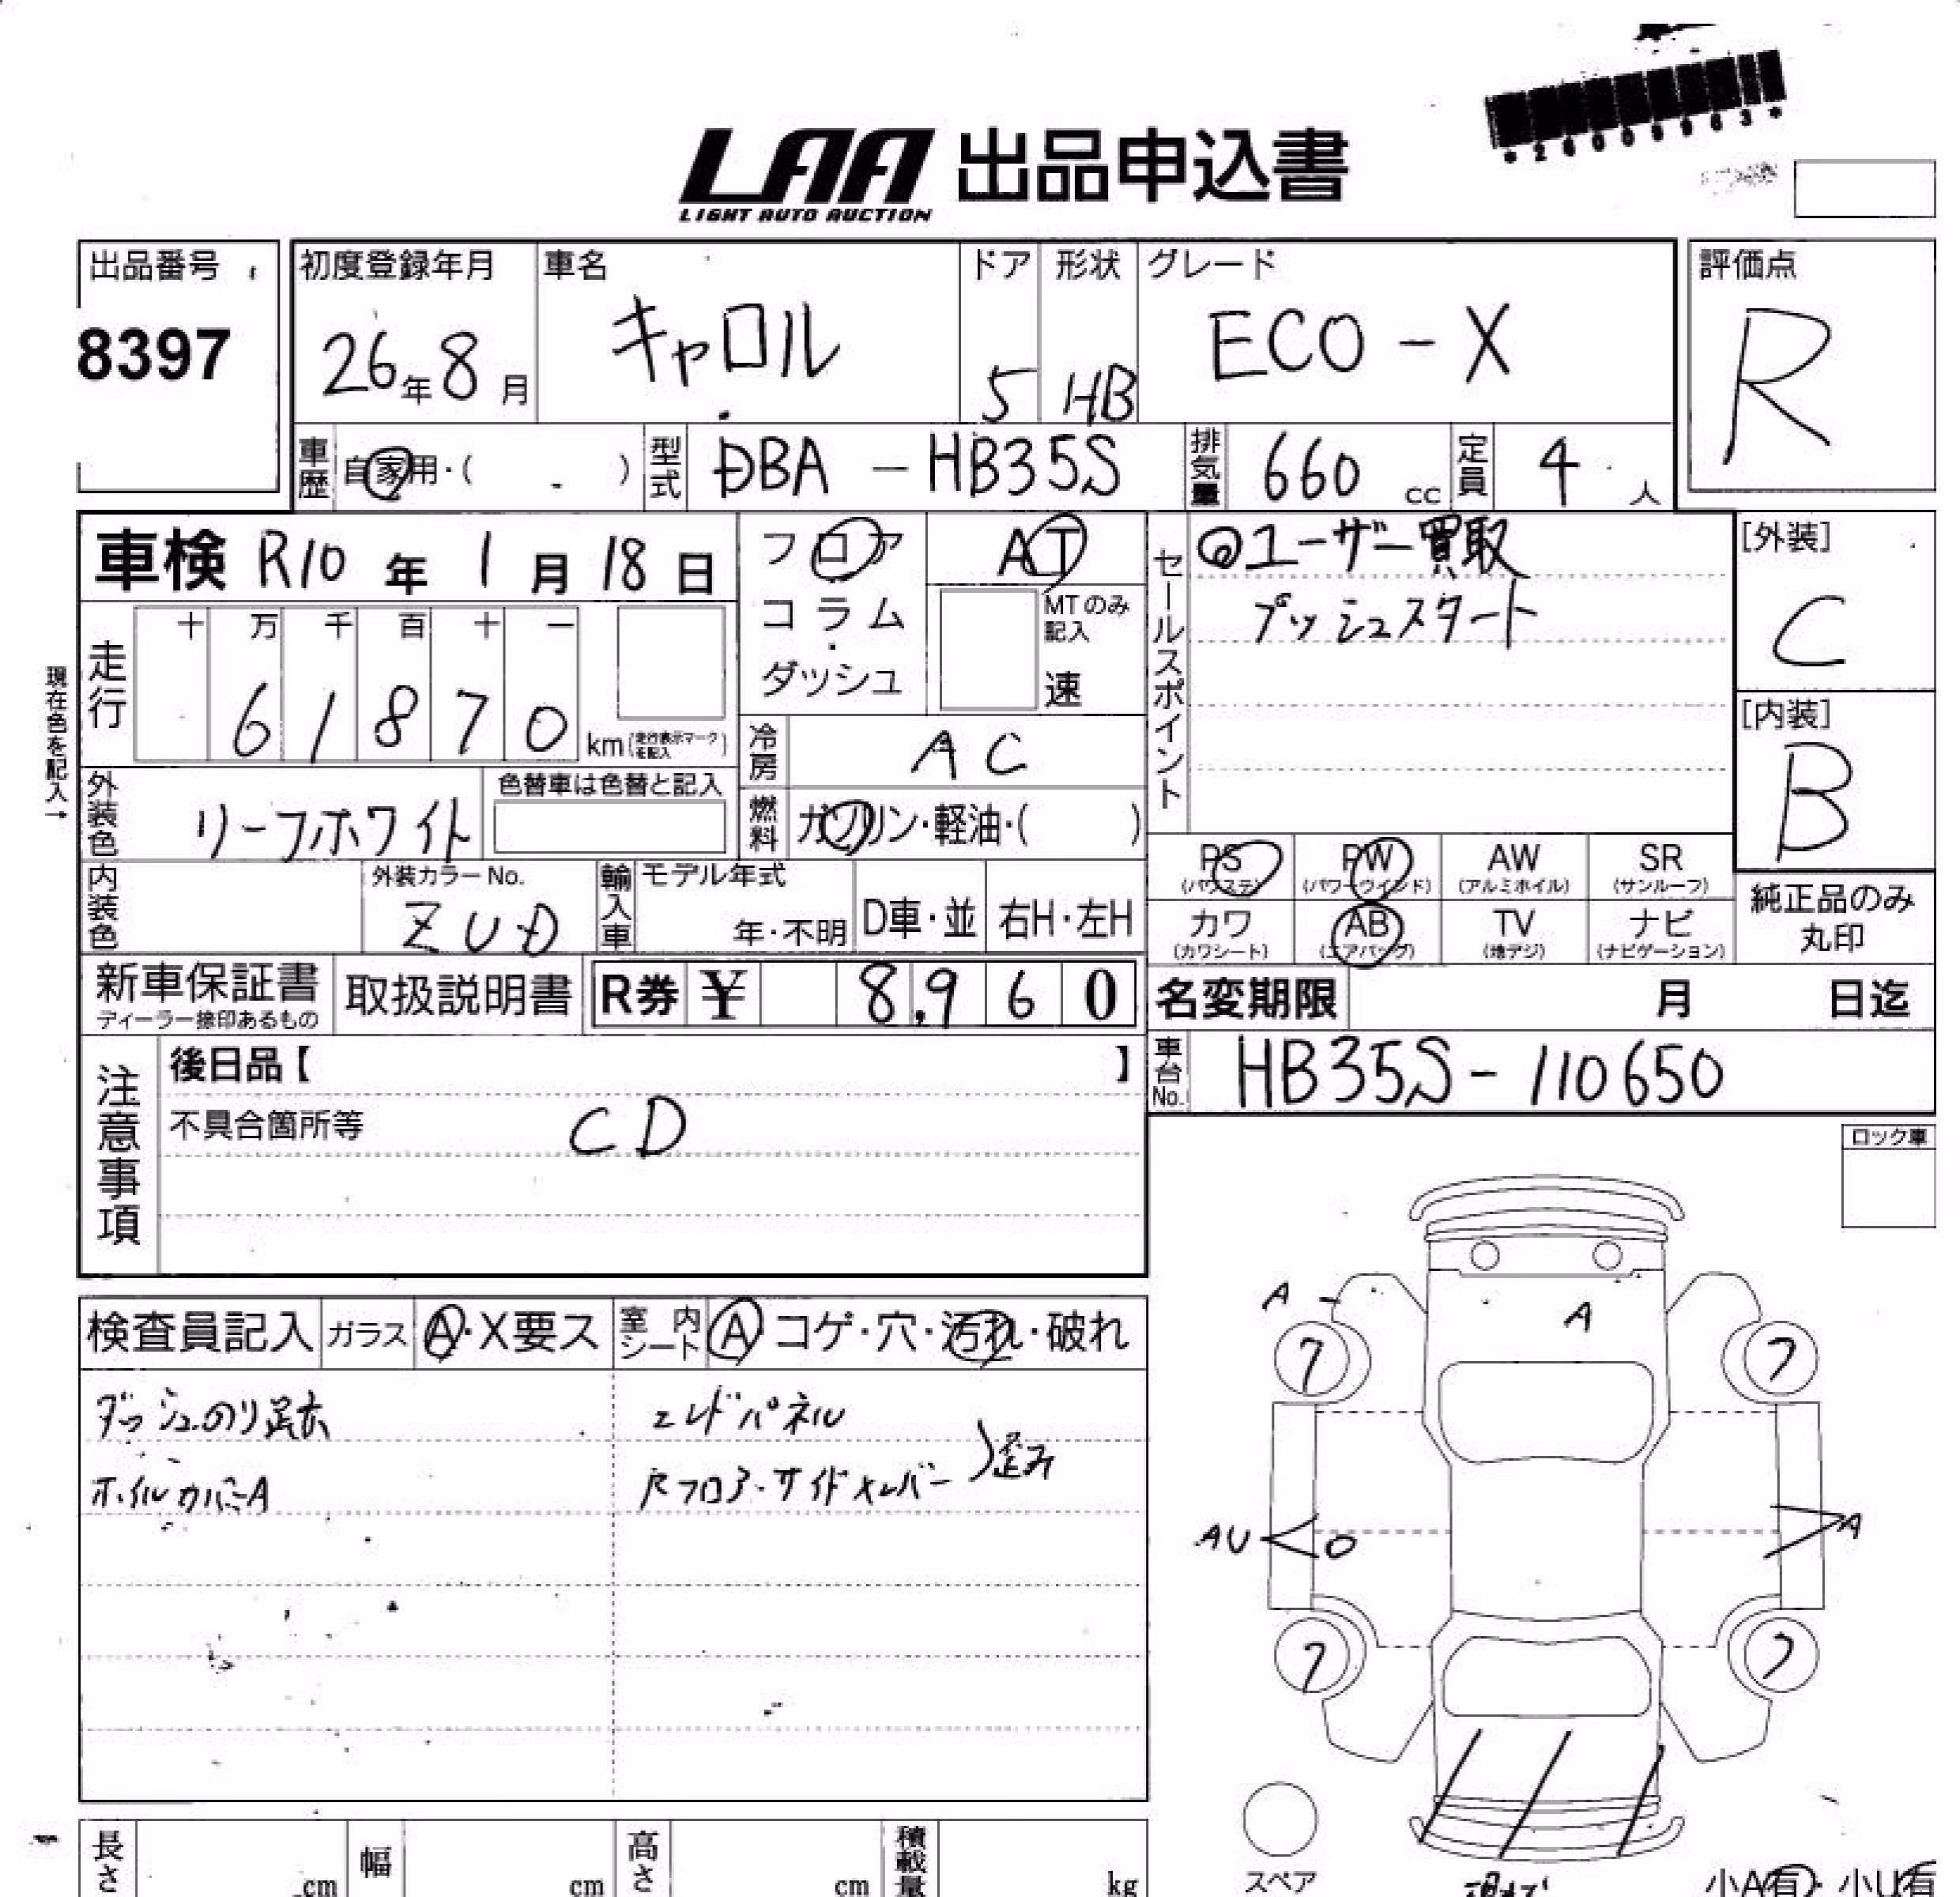 *26009963*
LAA 出品申込書
LIGHT AUTO AUCTION
出品番号
8397
初度登録年月
26年8月
車名
キャロル
ドア
5
形状
HB
グレード
ECO-X
評価点
R
車歴 自家用・( )
型式 DBA-HB35S
排気量 660 cc
定員 4 人
車検 R10年1月18日
フロア
コラム
ダッシュ
AT
MTのみ記入
速
セールスポイント
◎ユーザー買取
プッシュスタート
[外装]
C
[内装]
B
現在色を記入→
走行 十 万 千 百 十 一
6 1 8 7 0 km(走行表示マークを記入)
冷房 AC
外装色 リーフホワイト
色替車は色替と記入
燃料 ガソリン・軽油・( )
PS (パワステ)
PW (パワーウインド)
AW (アルミホイル)
SR (サンルーフ)
内装色
外装カラーNo.
ZUD
輸入車 モデル年式
年・不明
D車・並
右H・左H
カワ (カワシート)
AB (エアバッグ)
TV (地デジ)
ナビ (ナビゲーション)
純正品のみ
丸印
新車保証書
ディーラー捺印あるもの
取扱説明書
R券 ¥ 8,960
名変期限 月 日迄
注意事項
後日品【 】
不具合箇所等 CD
車台No. HB35S-110650
ロック車
検査員記入 ガラス A・X要ス
室内シート A コゲ・穴・汚れ・破れ
ダッシュのり跡
ホイルカバーA
エンドパネル
Rフロア・サイドメンバー
歪み
A
A
7
7
AU
A
7
7
スペア
長さ cm
幅 cm
高さ cm
積載量 kg
小A有・小U有